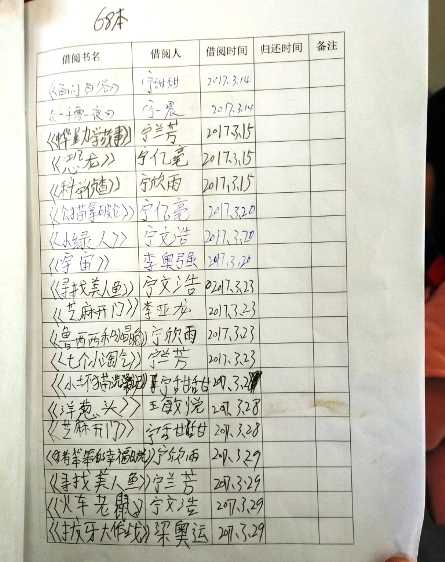 68本
借阅书名 借阅人 借阅时间 归还时间 备注
宁甜甜 2017.3.14
《一千零一夜》 宁一震 2017.3.14
宁兰芳 2017.3.15
《恐龙》 宁亿亮 2017.3.15
《科学侦查》 宁欣雨 2017.3.15
宁亿亮 2017.3.20
《小绿人》 宁文浩 2017.3.20
《宇宙》 李奥强 2017.3.20
《寻找美人鱼》 宁文浩 2017.3.23
《芝麻开门》 李亚龙 2017.3.23
宁欣雨 2017.3.23
《七个小淘气》 宁兰芳 2017.3.23
宁甜甜
《洋葱头》 王敏悦 2017.3.28
《芝麻开门》 宁甜甜 2017.3.28
宁欣雨 2017.3.29
《寻找美人鱼》 宁兰芳 2017.3.29
《火车老鼠》 宁文浩 2017.3.29
《拔牙大作战》 梁奥运 2017.3.29